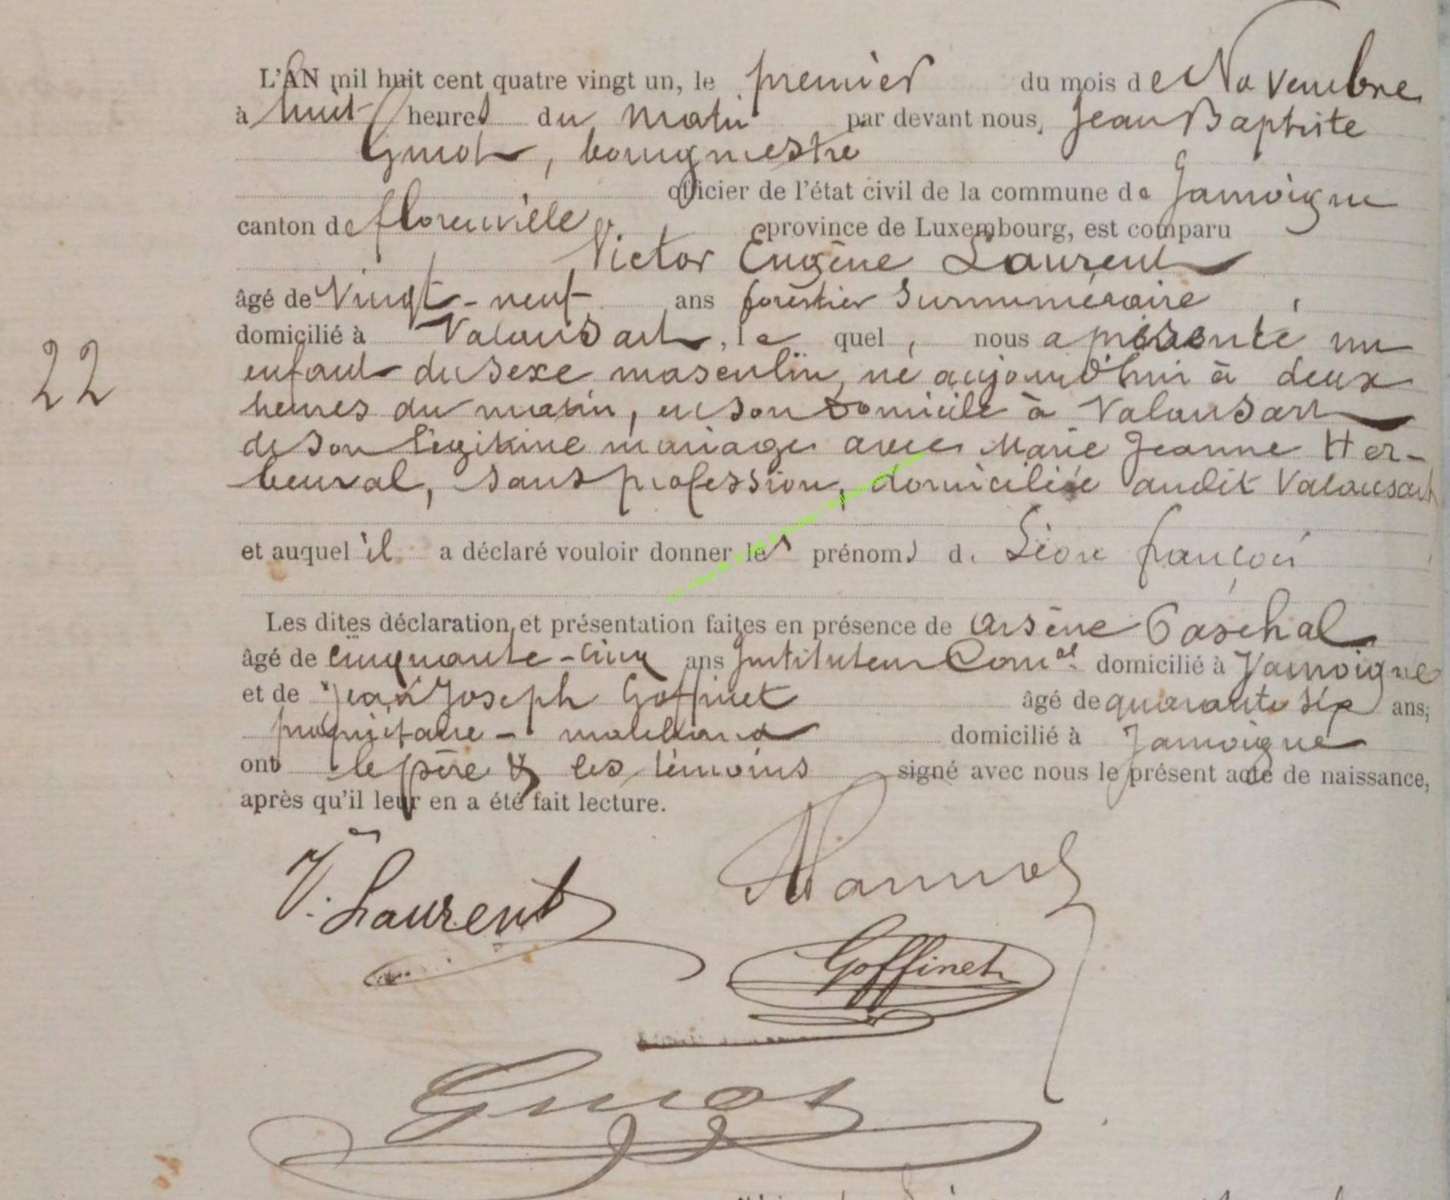 L'AN mil huit cent quatre vingt un, le premier du mois de Novembre
à huit heures du matin par devant nous, Jean Baptiste
Guiot, bourgmestre
officier de l'état civil de la commune de Jamoigne
canton de florenville province de Luxembourg, est comparu
Victor Eugène Laurent
âgé de Vingt-neuf ans forestier surnuméraire,
domicilié à Valansart, le quel, nous a présenté un
enfant du sexe masculin, né aujourd'hui à deux
heures du matin, en son domicile à Valansart
de son légitime mariage avec Marie Jeanne Her-
beuval, sans profession, domiciliée audit Valansart
22
et auquel il a déclaré vouloir donner les prénoms de Léon françois
Les dites déclaration et présentation faites en présence de Arsène
âgé de cinquante-cinq ans Instituteur Com.al domicilié à Jamoigne
et de Jean Joseph Goffinet âgé de quarante six ans,
propriétaire - marchand domicilié à Jamoigne
ont le père & les témoins signé avec nous le présent acte de naissance,
après qu'il leur en a été fait lecture.
V. Laurent
Goffinet
Guiot